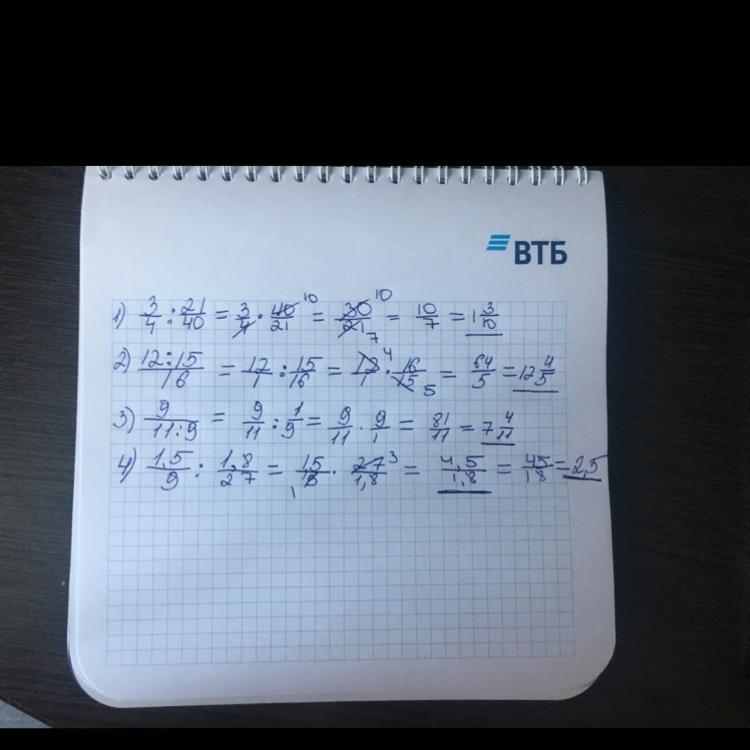 ВТБ
1) 3/4 : 21/40 = 3/4 · 40/21 10 = 30/21 10 7 = 10/7 = 1 3/10
2) 12:15/16 = 12/1 : 15/16 = 12/1 4 · 16/15 5 = 64/5 = 12 4/5
3) 9/11:9 = 9/11 : 1/9 = 9/11 · 9/1 = 81/11 = 7 4/11
4) 1,5/9 : 1,8/27 = 1,5/9 1 · 27/1,8 3 = 4,5/1,8 = 45/18 = 2,5